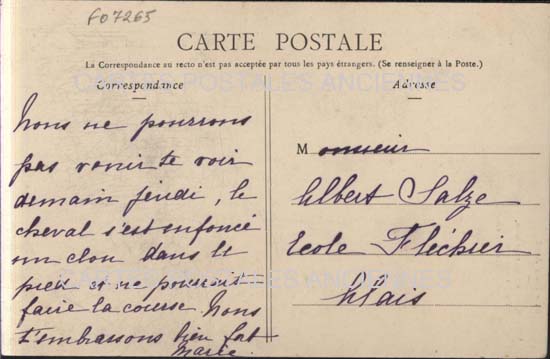 F07265
CARTE POSTALE
La Correspondance au recto n'est pas acceptée par tous les pays étrangers. (Se renseigner à la Poste.)
CARTES POSTALES ANCIENNES
Correspondance
Adresse
Nous ne pourrons
pas venir te voir
demain jeudi, le
cheval s'est enfoncé
un clou dans le
pied et ne pourrait
faire la course. Nous
t'embrassons bien fort
Marie.
Monsieur
Albert Salze
Ecole Fléchier
Alais
CARTES POSTALES ANCIENNES